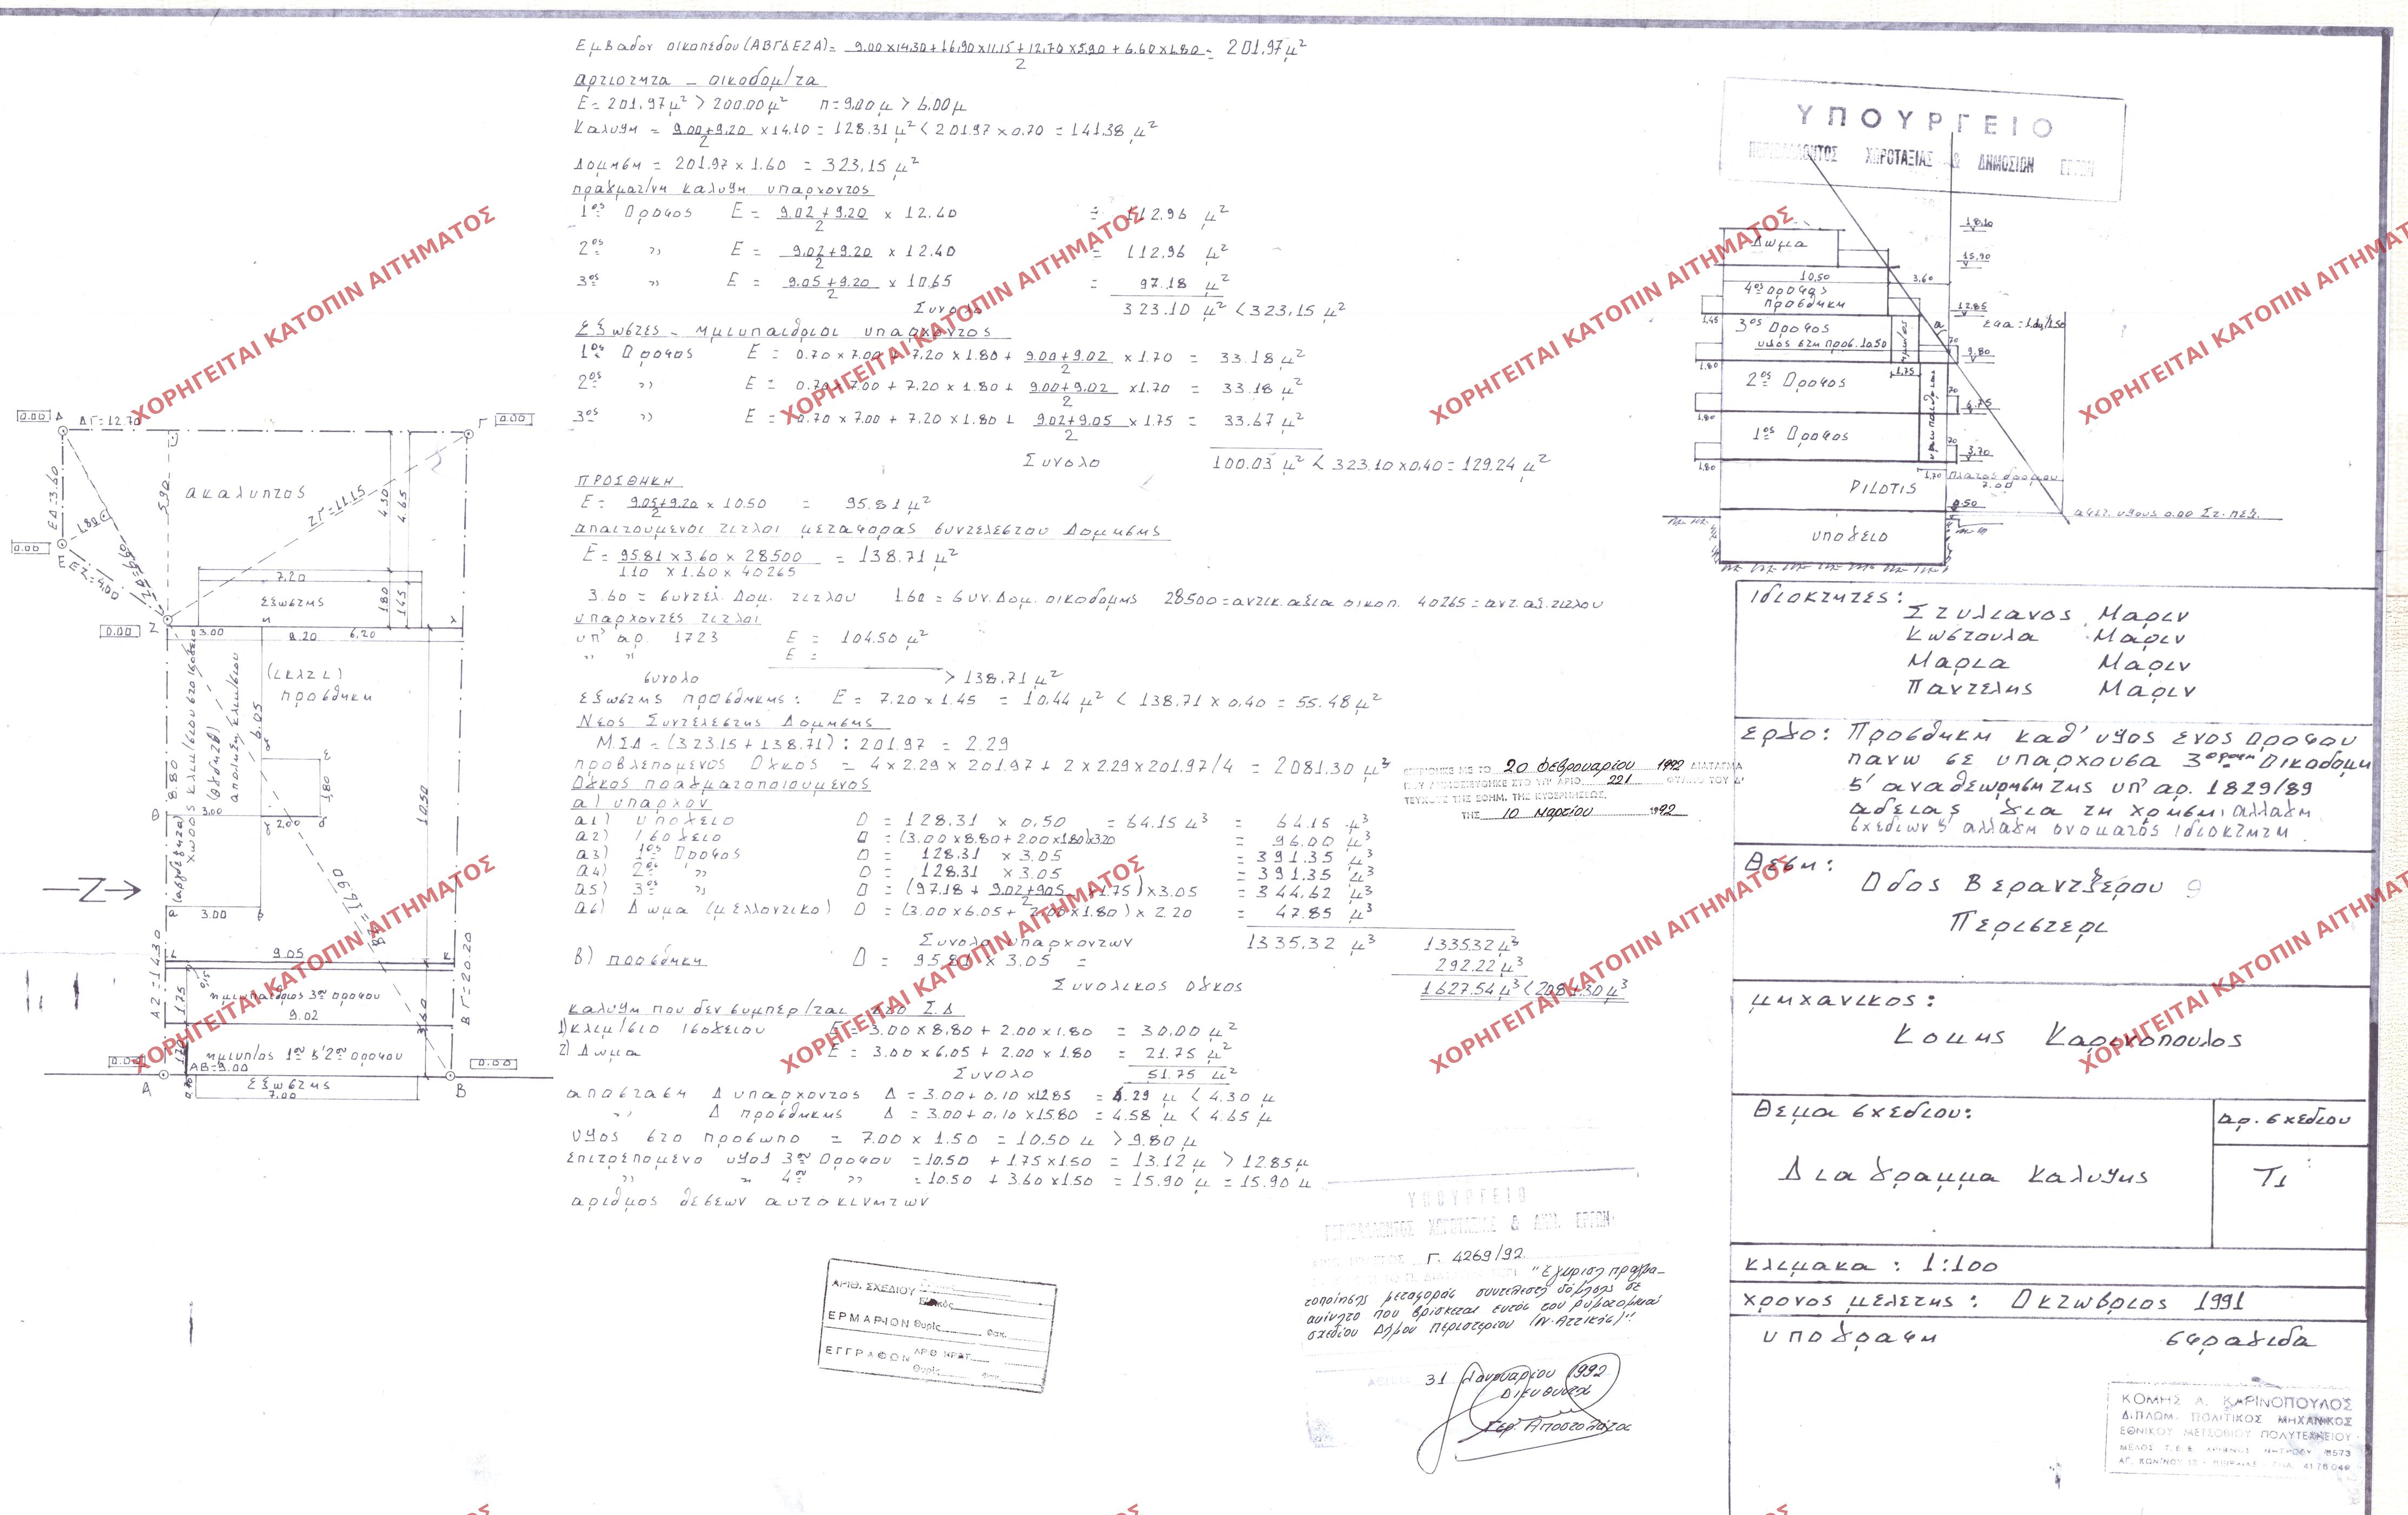 Εμβαδον οικοπεδου (ΑΒΓΔΕΖΑ) = 9.00 x 14.30 + 16.90 x 11.15 + 12.70 x 5.90 + 6.60 x 1.80 / 2 = 201.97 μ²
αρτιοτητα - οικοδομ/τα
Ε = 201.97 μ² > 200.00 μ² π = 9.00 μ > 6.00 μ
Καλυψη = 9.00 + 9.20 / 2 x 14.10 = 128.31 μ² < 201.97 x 0.70 = 141.38 μ²
Δομηση = 201.97 x 1.60 = 323,15 μ²
πραγματ/νη καλυψη υπαρχοντος
1ος Οροφος Ε = 9.02 + 9.20 / 2 x 12.40 = 112.96 μ²
2ος " Ε = 9.02 + 9.20 / 2 x 12.40 = 112.96 μ²
3ος " Ε = 9.05 + 9.20 / 2 x 10.65 = 97.18 μ²
Συνολο 323.10 μ² < 323,15 μ²
Εξωστες - ημιυπαιθριοι υπαρχοντος
1ος Οροφος Ε = 0.70 x 7.00 + 7.20 x 1.80 + 9.00 + 9.02 / 2 x 1.70 = 33.18 μ²
2ος " Ε = 0.70 x 7.00 + 7.20 x 1.80 + 9.00 + 9.02 / 2 x 1.70 = 33.18 μ²
3ος " Ε = 0.70 x 7.00 + 7.20 x 1.80 + 9.02 + 9.05 / 2 x 1.75 = 33.67 μ²
Συνολο 100.03 μ² < 323.10 x 0,40 = 129.24 μ²
ΠΡΟΣΘΗΚΗ
Ε = 9.05 + 9.20 / 2 x 10.50 = 95.81 μ²
απαιτουμενοι τιτλοι μεταφορας συντελεστου Δομησης
Ε = 95.81 x 3.60 x 28500 / 1.10 x 1.60 x 40265 = 138.71 μ²
3.60 = συντελ. Δομ. τιτλου 1.60 = συν. Δομ. οικοδομης 28500 = αντικ. αξια οικοπ. 40265 = αντ. αξ. τιτλου
υπαρχοντες τιτλοι
υπ' αρ. 1723 Ε = 104.50 μ²
" " Ε =
συνολο > 138.71 μ²
εξωστης προσθηκης : Ε = 7.20 x 1.45 = 10.44 μ² < 138.71 x 0.40 = 55.48 μ²
Νεος Συντελεστης Δομησης
Μ.Σ.Δ = (323.15 + 138.71) : 201.97 = 2.29
προβλεπομενος Ογκος = 4 x 2.29 x 201.97 + 2 x 2.29 x 201.97/4 = 2081.30 μ³
Ογκος πραγματοποιουμενος
α) υπαρχον
α1) υπογειο Ο = 128.31 x 0.50 = 64.15 μ³ = 64.15 μ³
α2) ισογειο Ο = (3.00 x 8.80 + 2.00 x 1.80) x 3.20 = 96.00 μ³
α3) 1ος Οροφος Ο = 128.31 x 3.05 = 391.35 μ³
α4) 2ος " Ο = 128.31 x 3.05 = 391.35 μ³
α5) 3ος " Ο = (97.18 + 9.02 + 9.05 / 2 x 1.75) x 3.05 = 344.62 μ³
α6) Δωμα (μελλοντικο) Ο = (3.00 x 6.05 + 2.00 x 1.80) x 2.20 = 47.85 μ³
Συνολο υπαρχοντων 1335,32 μ³ 1335.32 μ³
β) προσθηκη Ο = 95.81 x 3.05 = 292.22 μ³
Συνολικος ογκος 1627.54 μ³ < 2081.30 μ³
καλυψη που δεν συμπερ/ται στο Σ.Δ
1) κλιμ/σιο ισογειου Ε = 3.00 x 8.80 + 2.00 x 1.80 = 30.00 μ²
2) Δωμα Ε = 3.00 x 6.05 + 2.00 x 1.80 = 21.75 μ²
Συνολο 51.75 μ²
αποσταση Δ υπαρχοντος Δ = 3.00 + 0.10 x 12.85 = 4.29 μ < 4.30 μ
" Δ προσθηκης Δ = 3.00 + 0.10 x 15.80 = 4.58 μ < 4.65 μ
υψος στο προσωπο = 7.00 x 1.50 = 10.50 μ > 9.80 μ
επιτρεπομενο υψος 3ου Οροφου = 10.50 + 1.75 x 1.50 = 13.12 μ > 12.85 μ
" " 4ου " = 10.50 + 3.60 x 1.50 = 15.90 μ = 15.90 μ
αριθμος θεσεων αυτοκινητων
0.00 Δ ΔΓ = 12.70 Γ 0.00
ΕΔ = 3.60
5.90
ακαλυπτος
ΖΓ = 11.15
4.30
4.65
1.80
0.00
Ε
ΕΖ = 4.00
ΖΔ = 6.60
7.20
εξωστης
1.80
1.45
0.00 Ζ
3.00 9.20 6.20
(ικλΖι)
προσθηκη
χωρος κλιμ/σιου στο ισογειο
(αβγδεζηα)
8.80
6.05
απολ. κλιμ/σιου
1.80
3.00
2.00
10.50
Ζ
3.00
ΒΖ = 16.90
9.05
ΑΖ = 14.30
ΒΓ = 20.20
0.15
1.75
ημιυπαιθριος 3ου οροφου
9.02
3.60
1.70
ημιυπ/ος 1ου & 2ου οροφου
0.00
0.00
ΑΒ = 9.00
Α
Β
Εξωστης
0.70
7.00
ΥΠΟΥΡΓΕΙΟ
ΠΕΡΙΒΑΛΛΟΝΤΟΣ ΧΩΡΟΤΑΞΙΑΣ & ΔΗΜΟΣΙΩΝ ΕΡΓΩΝ
18.10
Δωμα
15.90
10.50
3.60
4ος οροφος
προσθηκη
12.85
1.45
3ος Οροφος
υψος στη προσ. 10.50
α
εφα = 1.50
70
9.80
1.80
1.75
2ος Οροφος
70
6.75
1.80
1ος Οροφος
70
3.70
1.80
1.70
πλατος δρομου
7.00
PILOTIS
0.50
αφετ. υψους 0.00 Στ. πεζ.
υπογειο
Ιδιοκτητες :
Στυλιανος Μαριν
Κωστουλα Μαριν
Μαρια Μαριν
Παντελης Μαριν
εργο : Προσθηκη καθ' υψος ενος οροφου
πανω σε υπαρχουσα 3οροφη Οικοδομη
& αναθεωρηση της υπ' αρ. 1829/89
αδειας για τη χρηση, αλλαγη
σχεδιων & αλλαγη ονοματος ιδιοκτητη
Θεση :
Οδος Βεραντζερου 9
Περιστερι
μηχανικος :
Κομης Καρινοπουλος
Θεμα σχεδιου :
αρ. σχεδιου
Διαγραμμα Καλυψης
Τ1
κλιμακα : 1:100
χρονος μελετης : Οκτωβριος 1991
υπογραφη σφραγιδα
ΚΟΜΗΣ Α. ΚΑΡΙΝΟΠΟΥΛΟΣ
ΔΙΠΛΩΜ. ΠΟΛΙΤΙΚΟΣ ΜΗΧΑΝΙΚΟΣ
ΕΘΝΙΚΟΥ ΜΕΤΣΟΒΙΟΥ ΠΟΛΥΤΕΧΝΕΙΟΥ
ΜΕΛΟΣ Τ.Ε.Ε. ΑΡΙΘΜΟΣ ΜΗΤΡΩΟΥ
ΤΗΛ. 4176 046
ΕΓΚΡΙΘΗΚΕ ΜΕ ΤΟ 20 Φεβρουαρίου 1992 ΔΙΑΤΑΓΜΑ
ΠΟΥ ΔΗΜΟΣΙΕΥΘΗΚΕ ΣΤΟ ΥΠ' ΑΡΙΘ. 221 ΦΥΛΛΟ ΤΟΥ Δ'
ΤΕΥΧΟΥΣ ΤΗΣ ΕΦΗΜ. ΤΗΣ ΚΥΒΕΡΝΗΣΕΩΣ,
ΤΗΣ 10 Μαρτίου 1992
ΥΠΟΥΡΓΕΙΟ
ΠΕΡΙΒΑΛΛΟΝΤΟΣ ΧΩΡΟΤΑΞΙΑΣ & ΔΗΜ. ΕΡΓΩΝ
Γ. 4269/92
"Εγκριση πραγμα-
τοποίησης μεταφοράς συντελεστή δόμησης σε
ακίνητο που βρίσκεται εντός του ρυμοτομικού
σχεδίου Δήμου Περιστερίου (Ν. Αττικής)"
31 Ιανουαρίου 1992
Διευθυντής
ΑΡΙΘ. ΣΧΕΔΙΟΥ
Ειδικός
ΕΡΜΑΡΙΟΝ Θυρίς Φακ.
ΕΓΓΡΑΦΩΝ ΑΡΙΘ ΚΡΑΤ.
Θυρίς
ΧΟΡΗΓΕΙΤΑΙ ΚΑΤΟΠΙΝ ΑΙΤΗΜΑΤΟΣ
ΧΟΡΗΓΕΙΤΑΙ ΚΑΤΟΠΙΝ ΑΙΤΗΜΑΤΟΣ
ΧΟΡΗΓΕΙΤΑΙ ΚΑΤΟΠΙΝ ΑΙΤΗΜΑΤΟΣ
ΧΟΡΗΓΕΙΤΑΙ ΚΑΤΟΠΙΝ ΑΙΤΗΜΑΤΟΣ
ΧΟΡΗΓΕΙΤΑΙ ΚΑΤΟΠΙΝ ΑΙΤΗΜΑΤΟΣ
ΧΟΡΗΓΕΙΤΑΙ ΚΑΤΟΠΙΝ ΑΙΤΗΜΑΤΟΣ
ΧΟΡΗΓΕΙΤΑΙ ΚΑΤΟΠΙΝ ΑΙΤΗΜΑΤΟΣ
ΧΟΡΗΓΕΙΤΑΙ ΚΑΤΟΠΙΝ ΑΙΤΗΜΑΤΟΣ